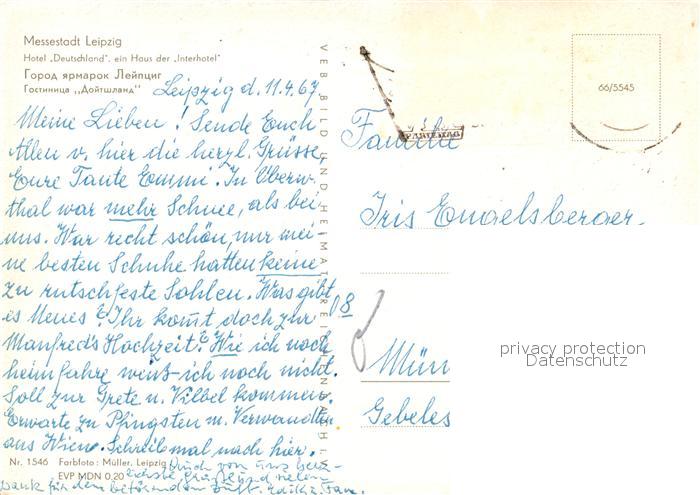 Messestadt Leipzig
Hotel „Deutschland", ein Haus der „Interhotel"
Город ярмарок Лейпциг
Гостиница „Дойтшланд"
Leipzig d. 11.4.67
Meine Lieben! Sende Euch
Allen v. hier die herzl. Grüsse,
Eure Tante Emmi. In Oberw.
thal war mehr Schnee, als bei
uns. War recht schön, nur mei-
ne besten Schuhe hatten keine
zu rutschfeste Sohlen. Was gibt
es Neues? Ihr komt doch zur
Manfreds Hochzeit? Wie ich nach
heimfahre weiss ich noch nicht.
Soll zur Grete n. Vilbel kommen.
Erwarte zu Pfingsten m. Verwandten
aus Wien. Schreib mal nach hier.
Nr. 1546 Farbfoto: Müller, Leipzig
EVP MDN 0,20
Auch von uns herz-
lichste Grüße und vielen
Dank für den
VEB BILD UND HEIMAT REICHENBACH
66/5545
Familie
Iris Engelsberger.
8
Mün
Gebeles
privacy protection
Datenschutz